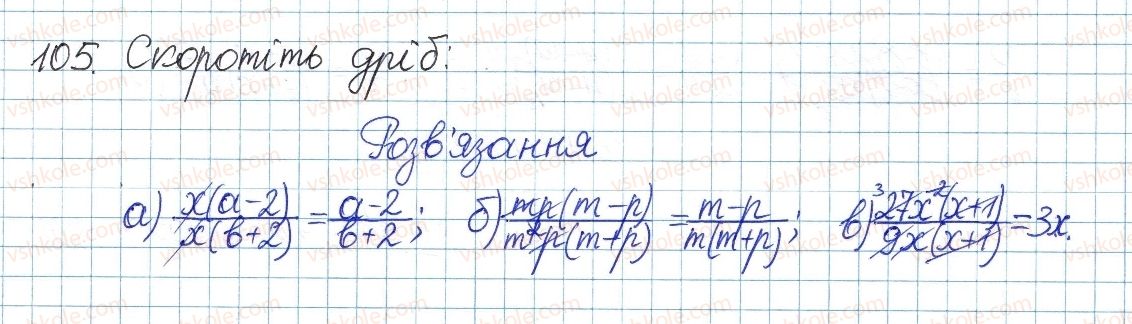 105. Скоротіть дріб:
Розв'язання
а) x(a-2)/x(в+2) = a-2/в+2; б) mp(m-p)/m²p(m+p) = m-p/m(m+p); в) ³27x²(x+1)/9x(x+1) = 3x.